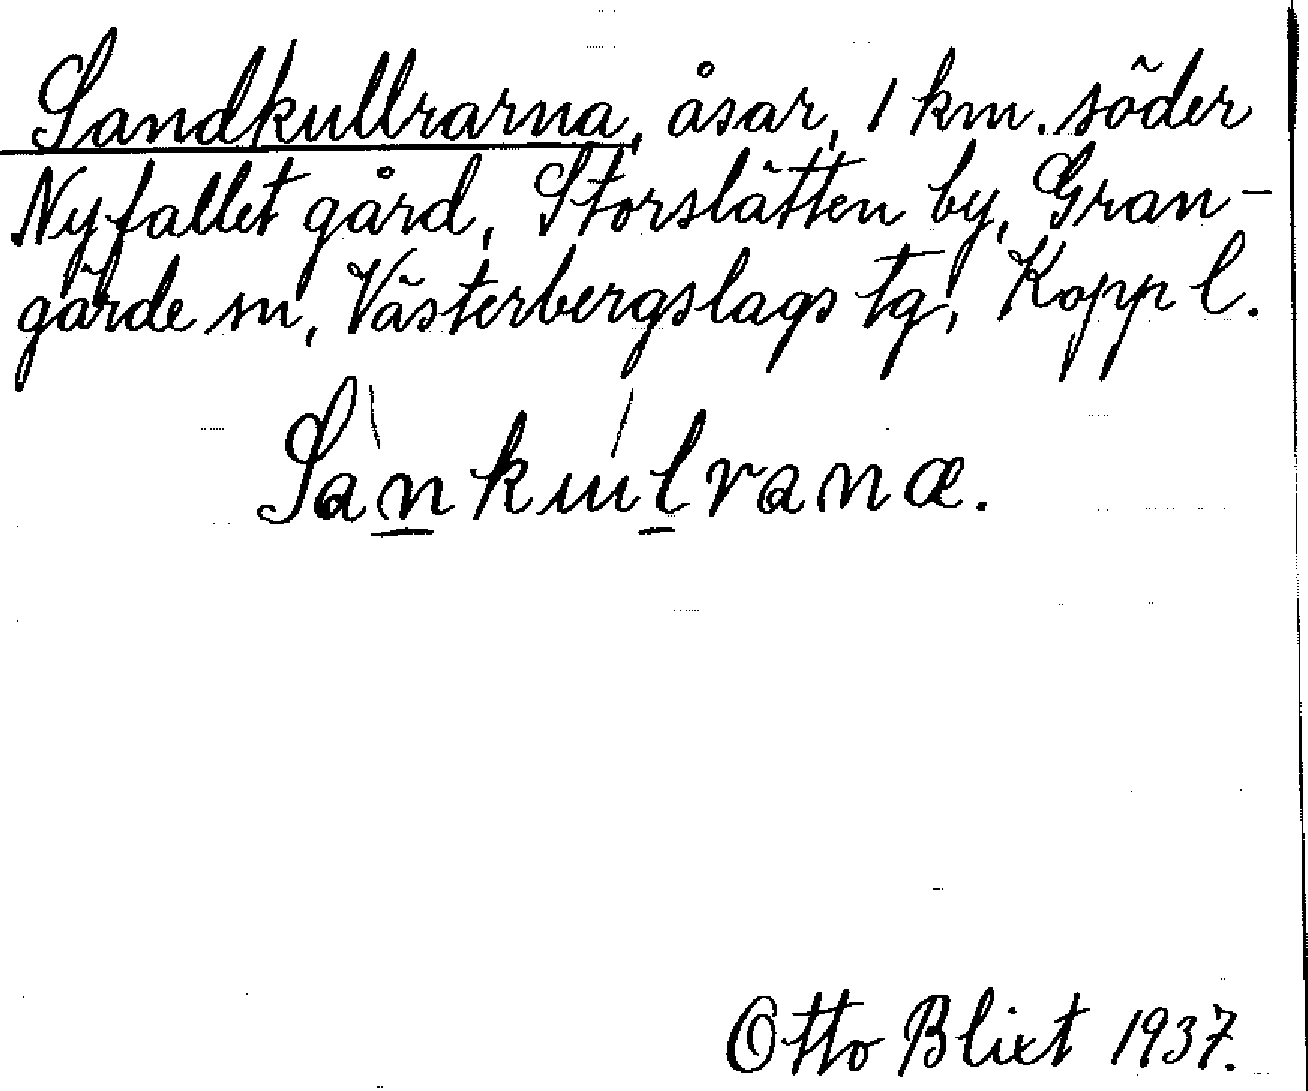 Sandkullrarna, åsar, 1 km. söder
Nyfallet gård, Storslätten by, Gran-
gärde sn, Västerbergslags tg, Kopp l.
Sànkúlranæ.
Otto Blixt 1937.